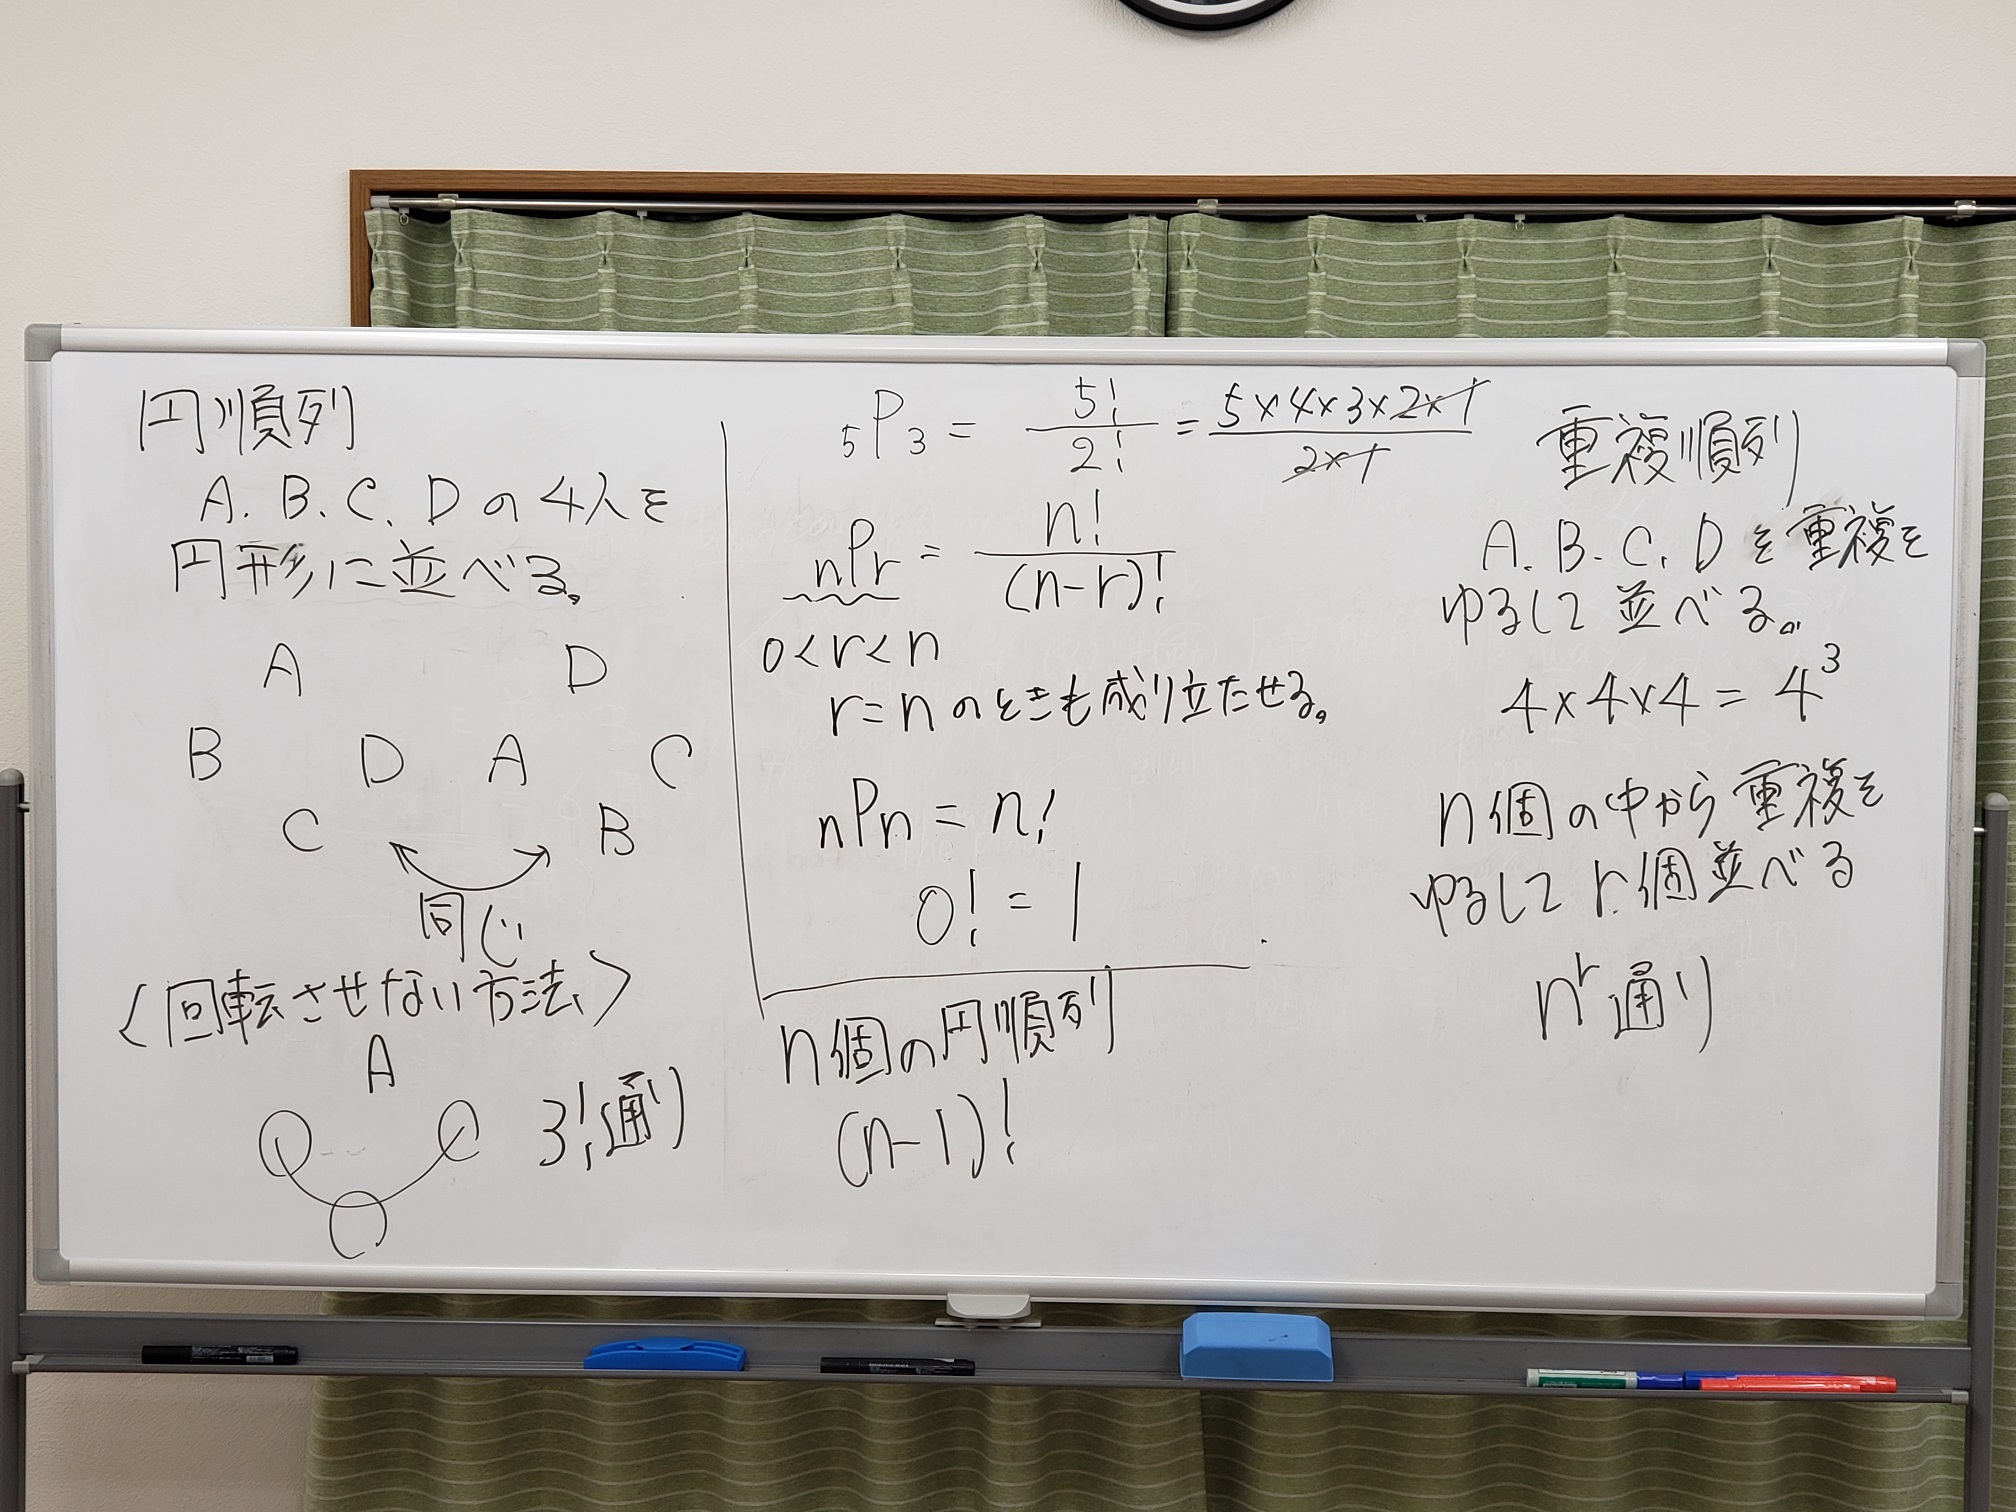 円順列
A. B. C. D の 4人を
円形に並べる。
A
B D
C
D
A C
B
同じ
〈回転させない方法〉
A
3!通り
₅P₃ = 5!/2! = 5×4×3×2×1/2×1
nPr = n!/(n-r)!
0<r<n
r=n のときも成り立たせる。
nPn = n!
0! = 1
n個の円順列
(n-1)!
重複順列
A. B. C. D を重複を
ゆるして並べる。
4×4×4 = 4³
n個の中から重複を
ゆるして r個並べる
nʳ通り